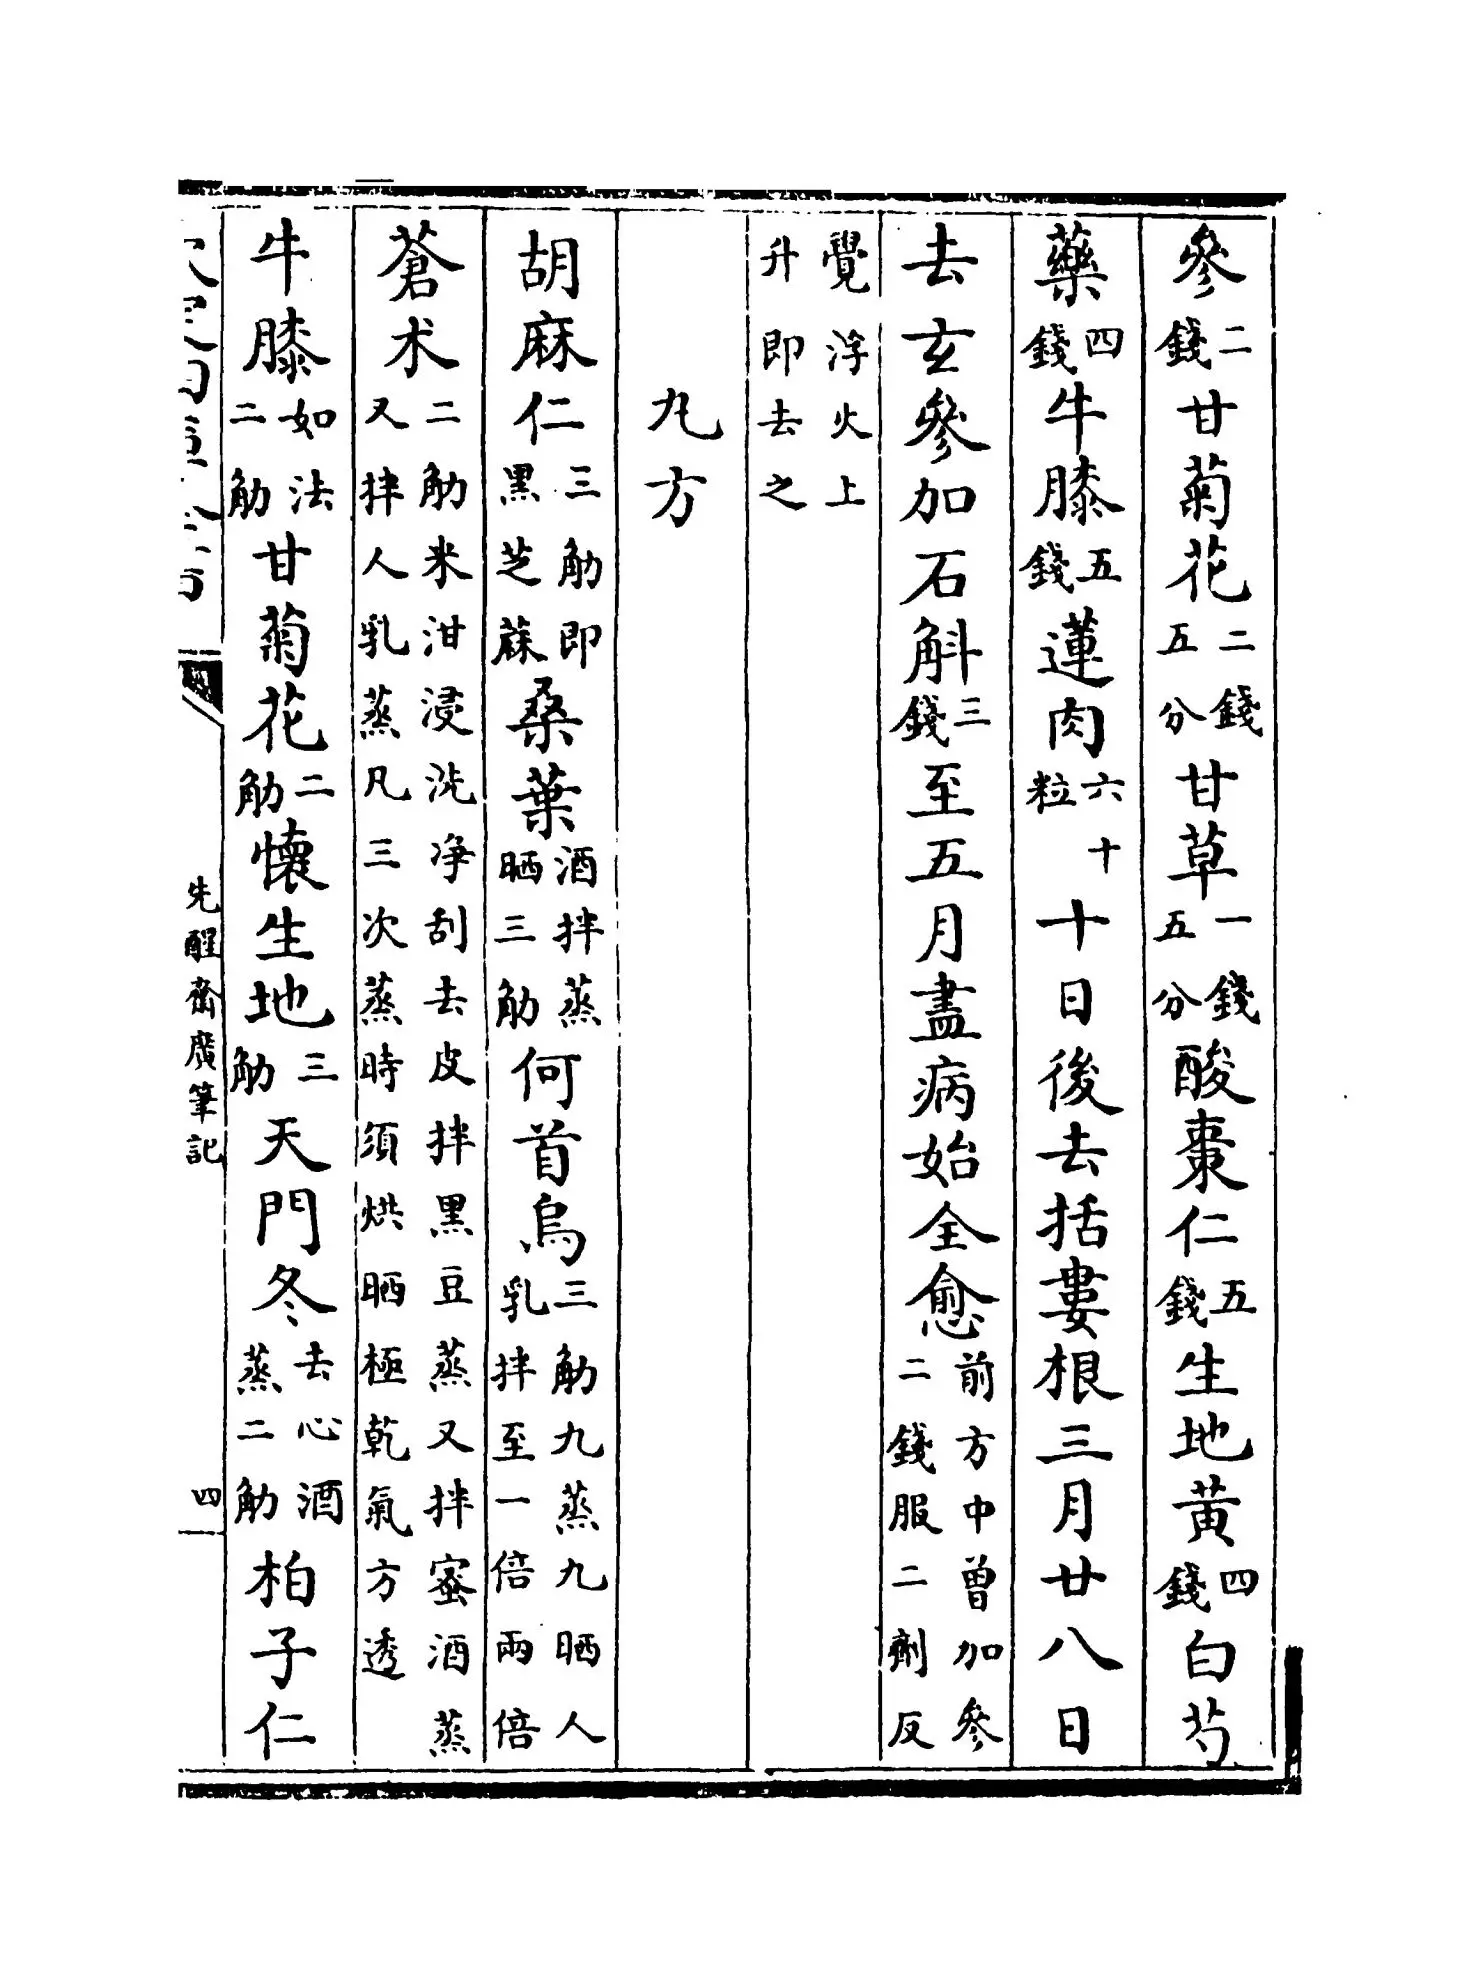 參二錢甘菊花二錢五分甘草一錢五分酸棗仁五錢生地黃四錢白芍
藥四錢牛膝五錢蓮肉六十粒十日後去括蔞根三月廿八日
去玄參加石斛三錢至五月盡病始全愈前方中曾加參二錢服二劑反
覺浮火上升即去之
丸方
胡麻仁三觔即黑芝蔴桑葉酒拌蒸晒三觔何首烏三觔九蒸九晒人乳拌至一倍兩倍
蒼术二觔米泔浸洗淨刮去皮拌黑豆蒸又拌蜜酒蒸又拌人乳蒸凡三次蒸時須烘晒極乾氣方透
牛膝如法二觔甘菊花二觔懷生地三觔天門冬去心酒蒸二觔柏子仁
先醒齋廣筆記
四